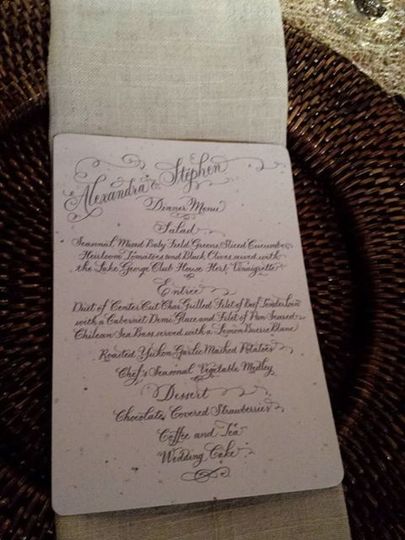 Alexandra & Stephen
Dinner Menu
Salad
Seasonal Mixed Baby Field Greens, Sliced Cucumber,
Heirloom Tomatoes and Black Olives served with
the Lake George Club House Herb Vinaigrette
Entrée
Duet of Center Cut Char Grilled Filet of Beef Tenderloin
with a Cabernet Demi Glace and Filet of Pan Seared
Chilean Sea Bass served with a Lemon Buerre Blanc
Roasted Yukon Garlic Mashed Potatoes
Chef's Seasonal Vegetable Medley
Dessert
Chocolate Covered Strawberries
Coffee and Tea
Wedding Cake